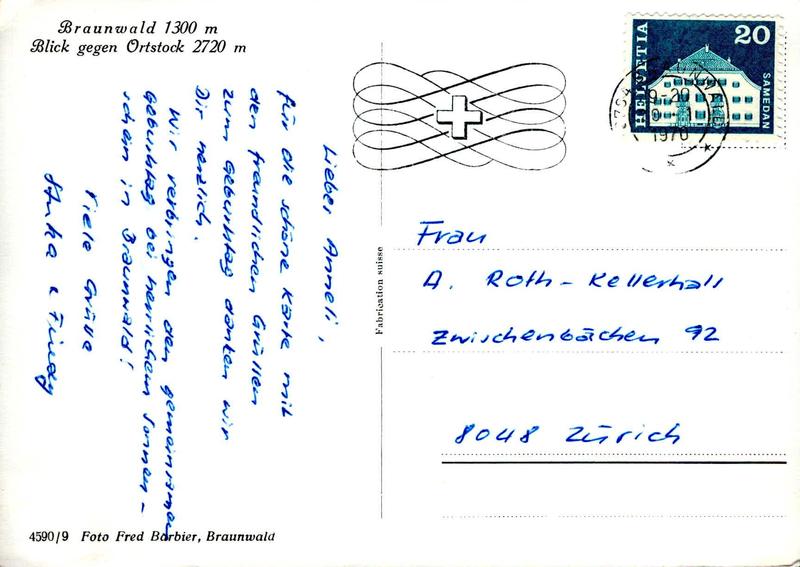 Braunwald 1300 m
Blick gegen Ortstock 2720 m
Lieber Anneli,
für die schöne Karte mit
den freundlichen Grüssen
zum Geburtstag danken wir
Dir herzlich.
Wir verbringen den gemeinsamen
Geburtstag bei herrlichem Sonnen-
schein in Braunwald!
Viele Grüsse
Fabrication suisse
HELVETIA
20
SAMEDAN
1970
Frau
A. Roth-Kellerhall
Zwischenbächen 92
8048 Zürich
4590/9 Foto Fred Barbier, Braunwald